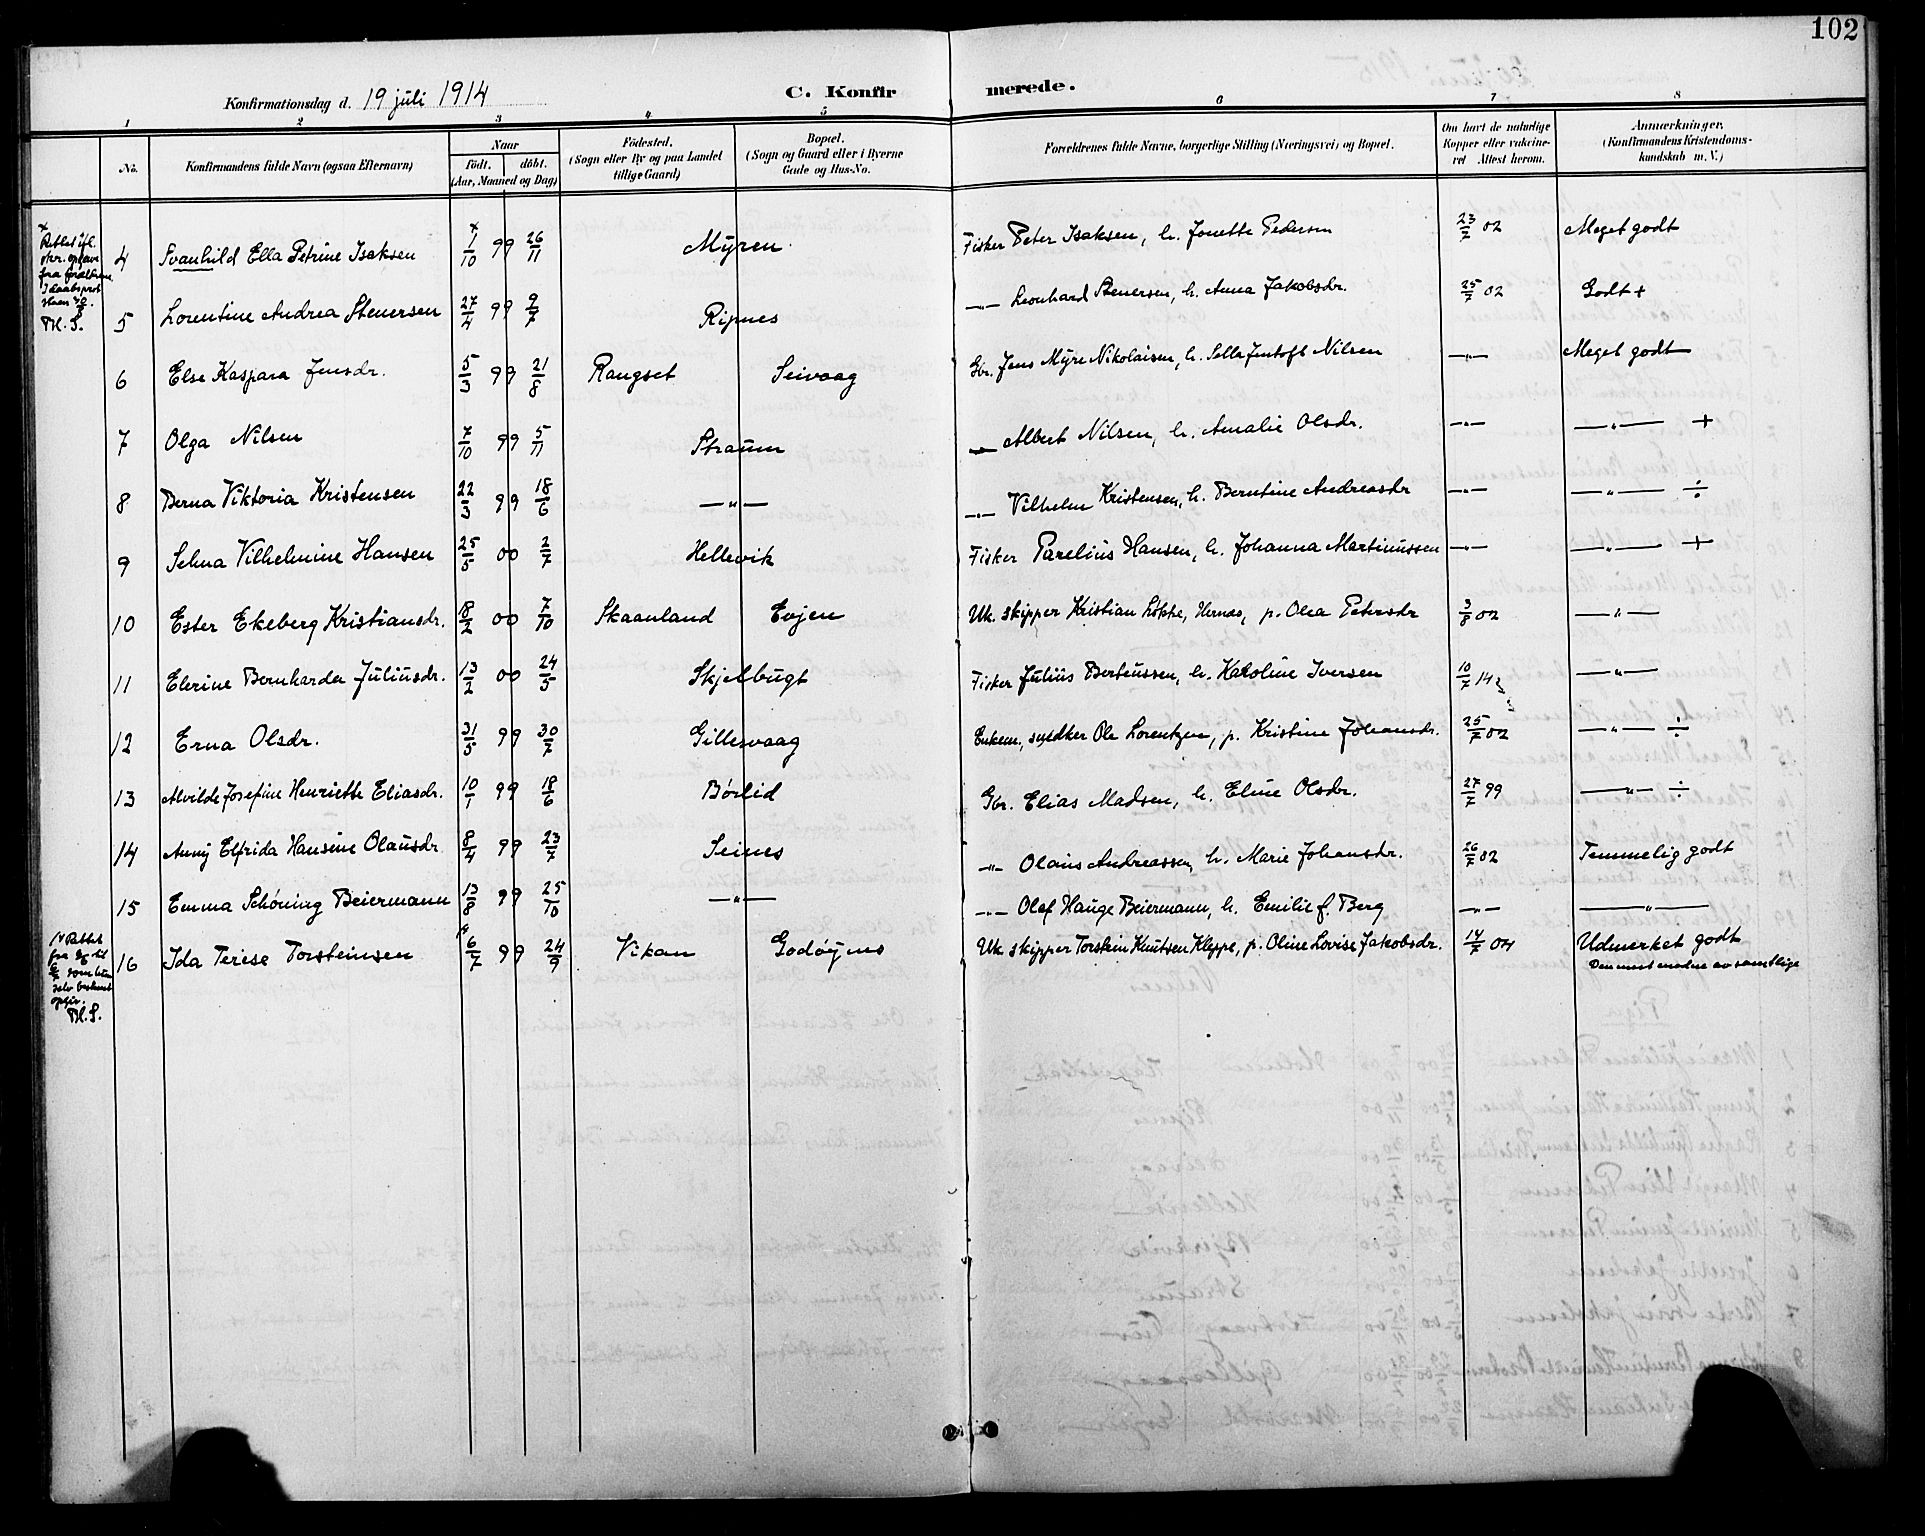 102
Konfirmationsdag d. 19 juli 1914 C. Konfirmerede.
1 2 3 4 5 6 7 8
No.
Konfirmandens fulde Navn (ogsaa Efternavn)
Naar
født. døbt.
(Aar, Maaned og Dag)
Födested.
(Sogn eller By og paa Landet
tillige Gaard)
Bopæl.
(Sogn og Gaard eller i Byerne
Gade og Hus-No.
Forældrenes fulde Navne, borgerlige Stilling (Næringsvei) og Bopæl.
Om havt de naturlige
Kopper eller vakcine-
ret Attest herom.
Anmærkninger.
(Konfirmandens Kristendoms-
kundskab m. V.)
4 Svanhild Ella Petrine Isaksen x 1/10 99 26/11 Myren Fisker Peter Isaksen, h. Jonette Pedersen 23/7 02 Meget godt
5 Lorentine Andrea Stenersen 27/4 99 9/7 Ripnes —„— Leonhard Stenersen, h. Anna Jakobsdr. 25/7 02 Godt +
6 Else Kaspara Jensdr. 5/3 99 21/8 Rangset Seivaag Gbr. Jens Myre Nikolaisen, h. Sella Jentoft Nilsen —„— Meget godt
7 Olga Nilsen 7/10 99 5/11 Straum —„— Albert Nilsen, h. Amalie Olsdr. —„— —„— +
8 Berna Viktoria Kristensen 22/3 99 18/6 —„— —„— Vilhelm Kristensen, h. Berntine Andreasdr —„— —„— ÷
9 Selma Vilhelmine Hansen 25/5 00 2/7 Hellevik Fisker Parelius Hansen, h. Johanna Martinussen —„— —„— +
10 Ester Ekeberg Kristiansdr. 18/2 00 7/10 Skaanland Evjen Uk. skipper Kristian Løkke, Hernes, p. Olea Petersdr 3/8 02 —„—
11 Elerine Bernharda Juliusdr. 13/2 00 24/5 Skjelbugt Fisker Julius Berteussen, h. Karoline Iversen 10/7 14 —„—
12 Erna Olsdr. 31/5 99 30/7 Gillesvaag Enkem., snedker Ole Lorentzen, p. Kristine Johansdr. 25/7 02 —„— ÷
13 Alvilde Josefine Henriette Eliasdr. 10/1 99 18/6 Børlid Gbr. Elias Madsen, h. Eline Olsdr. 27/7 99 —„— ÷
14 Anny Elfrida Hansine Olausdr 8/4 99 23/7 Seines —„— Olaus Andreassen, h. Marie Johansdr. 26/7 02 Temmelig godt
15 Emma Schøning Beiermann 13/8 99 25/10 —„— —„— Olaf Hauge Beiermann, h. Emilie f. Berg —„— —„—
16 Ida Terese Torsteinsen 6/7 99 24/9 Vikan Godøynes Uk. skipper Torstein Knutsen Kleppe, p. Oline Lovise Jakobsdr. 14/7 04 Udmerket godt
Den mest modne av samtlige